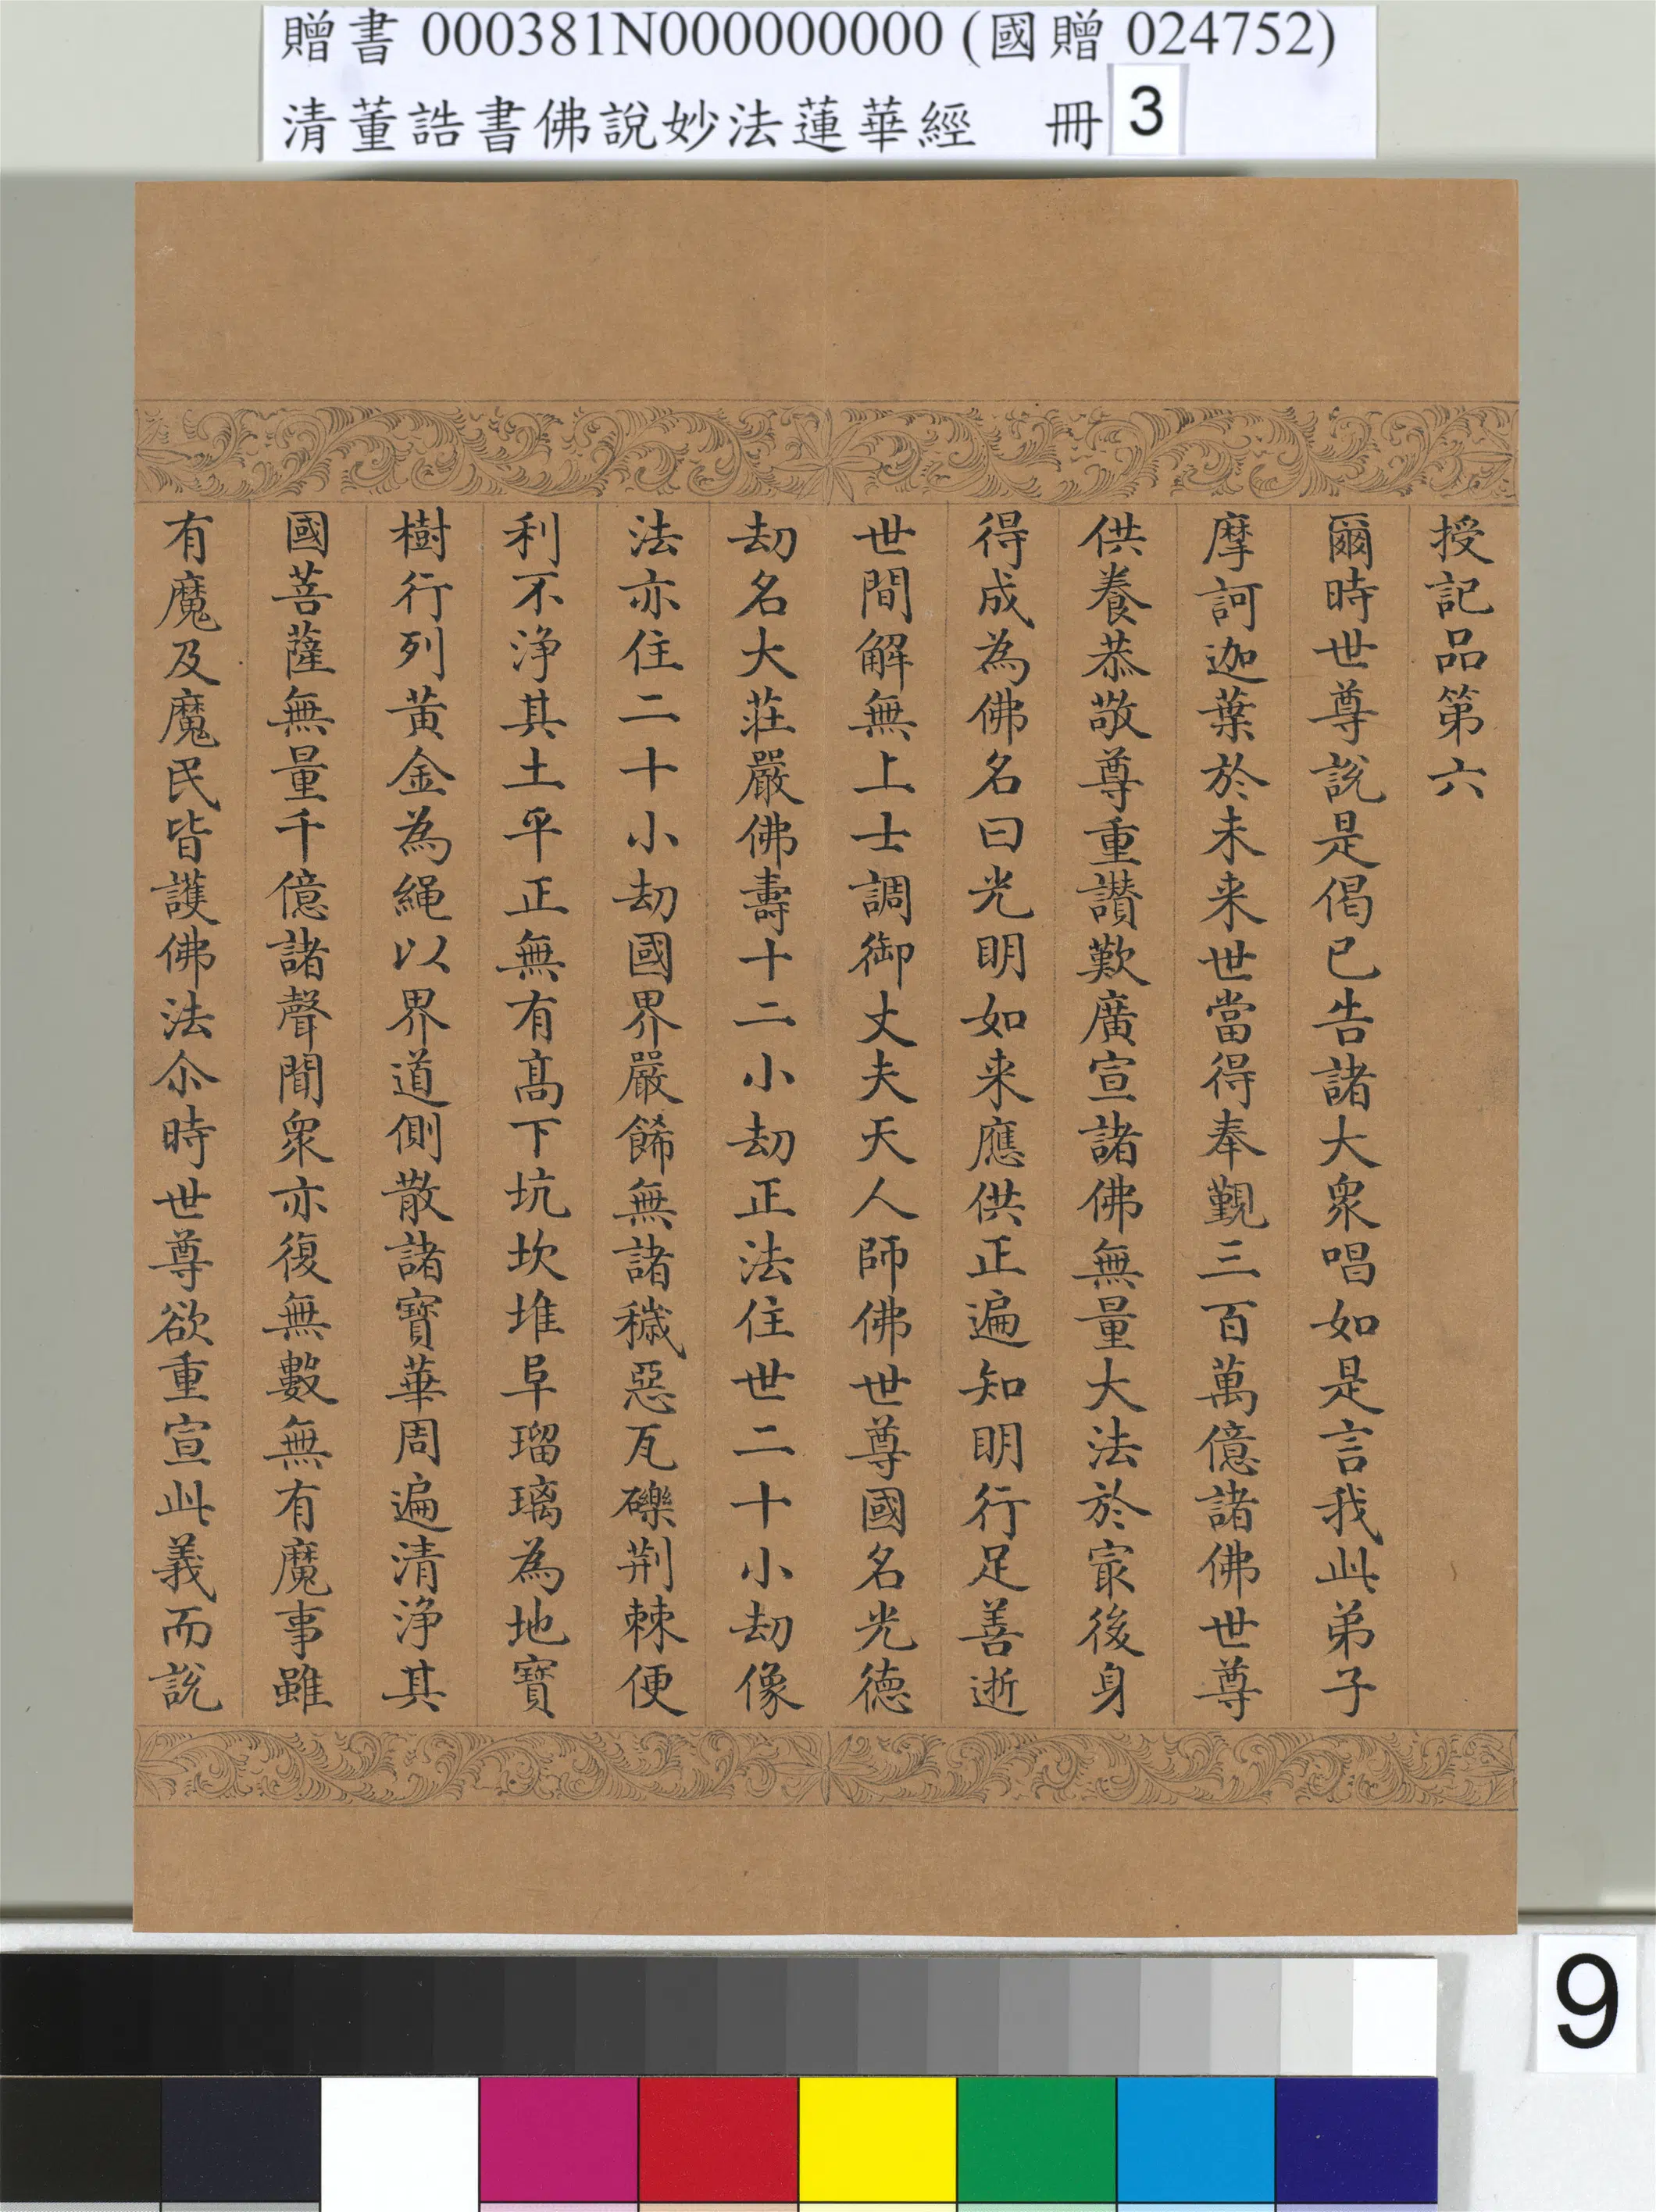 贈書 000381N000000000 (國贈 024752)
清董誥書佛說妙法蓮華經 冊 3
授記品第六
爾時世尊說是偈已告諸大衆唱如是言我此弟子
摩訶迦葉於未来世當得奉覲三百萬億諸佛世尊
供養恭敬尊重讃歎廣宣諸佛無量大法於㝡後身
得成為佛名曰光明如来應供正遍知明行足善逝
世間解無上士調御丈夫天人師佛世尊國名光德
劫名大莊嚴佛壽十二小劫正法住世二十小劫像
法亦住二十小劫國界嚴餙無諸穢惡瓦礫荆棘便
利不淨其土平正無有髙下坑坎堆阜瑠璃為地寶
樹行列黃金為繩以界道側散諸寶華周遍清淨其
國菩薩無量千億諸聲聞衆亦復無數無有魔事雖
有魔及魔民皆護佛法尒時世尊欲重宣此義而說
9